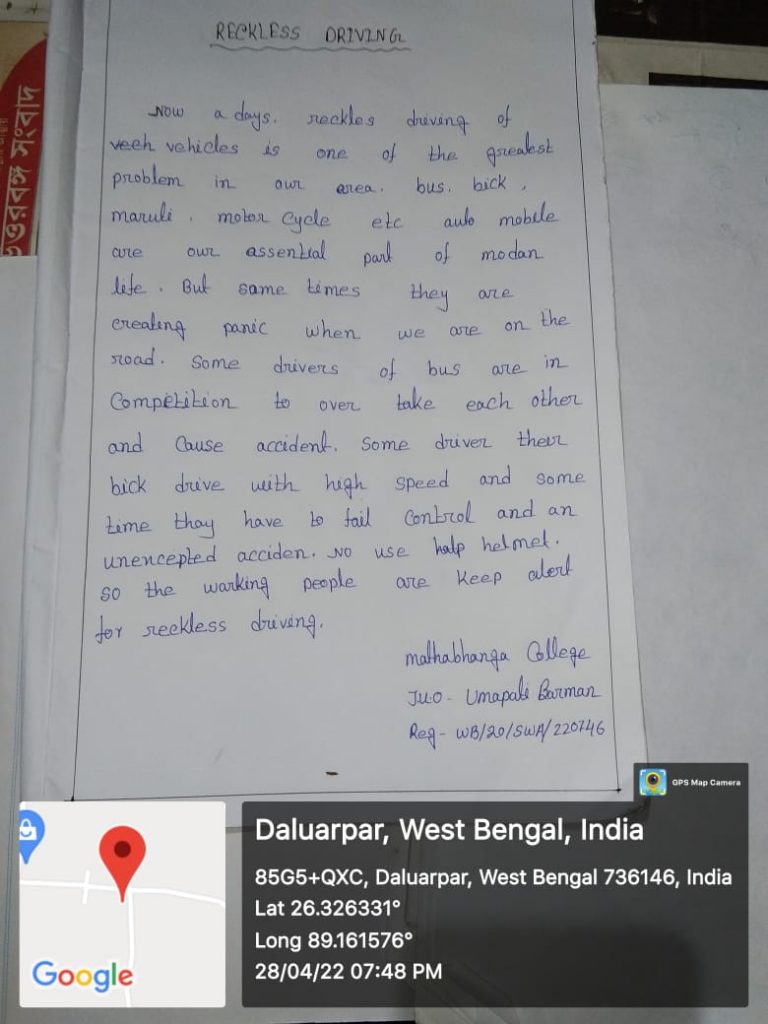 উত্তরবঙ্গ সংবাদ
RECKLESS DRIVING
Now a days. reckles driving of
veeh vehicles is one of the greatest
problem in our area. bus. bick,
maruli. motor cycle etc auto mobile
are our assential part of modan
life. But same times they are
creating panic when we are on the
road. Some drivers of bus are in
Competition to over take each other
and Cause accident. Some driver their
bick drive with high speed and some
time thay have to fail control and an
unencepted acciden. No use halp helmet.
so the warking people are keep alert
for reckless driving.
Mathabhanga College
JUO - Umapati Barman
Reg - WB/20/SWA/220746
GPS Map Camera
Daluarpar, West Bengal, India
85G5+QXC, Daluarpar, West Bengal 736146, India
Lat 26.326331°
Long 89.161576°
28/04/22 07:48 PM
Google